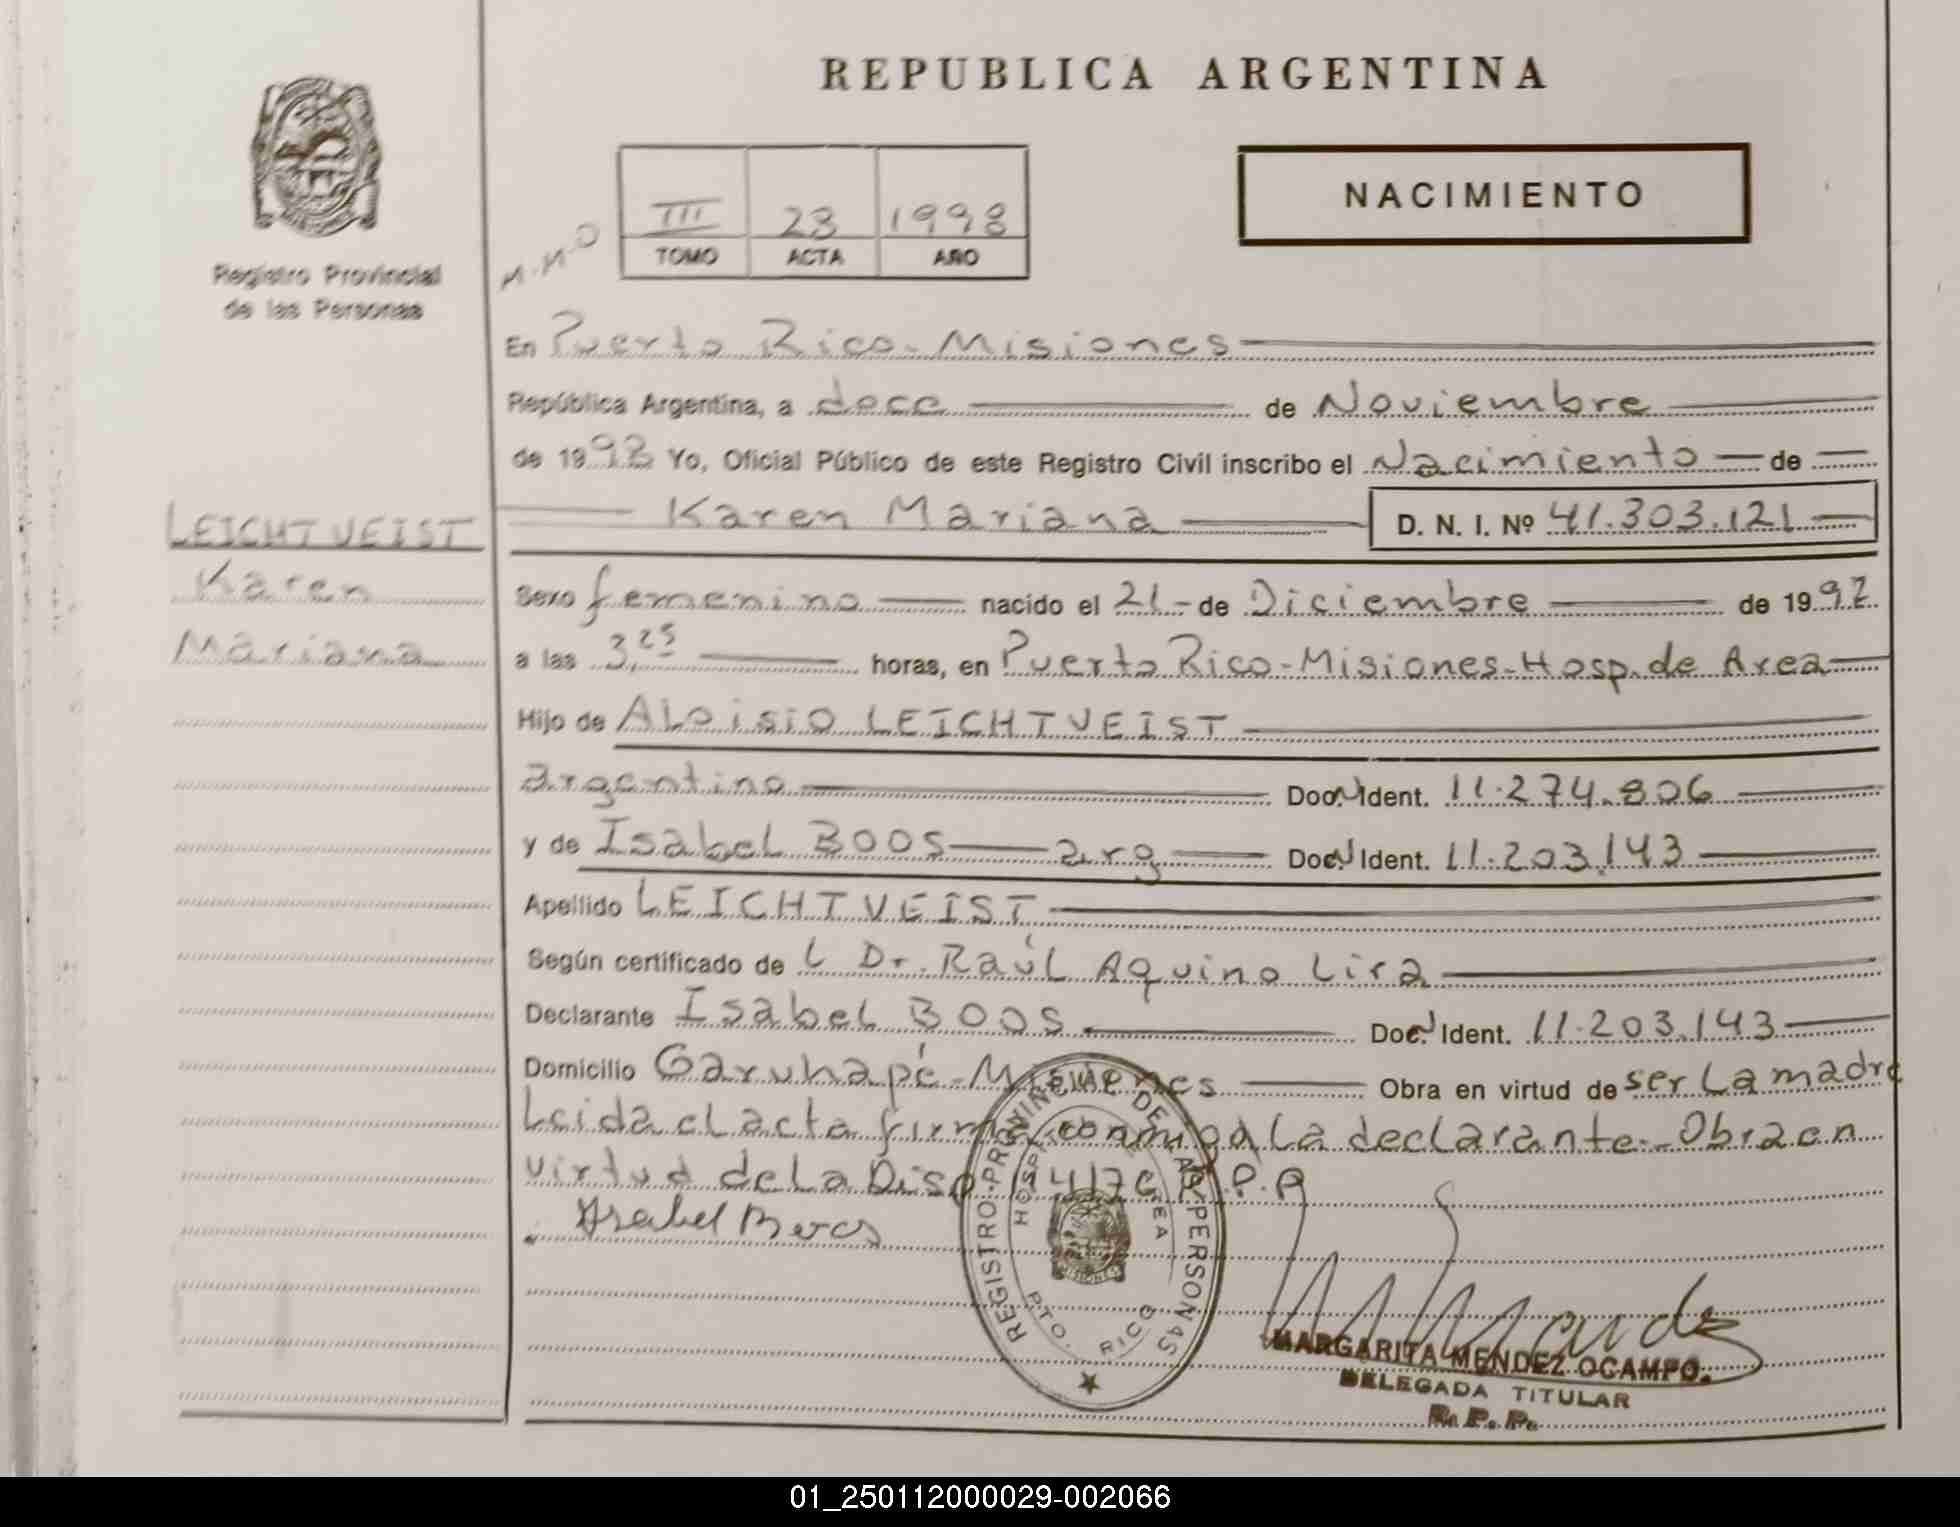 REPUBLICA ARGENTINA
NACIMIENTO
III 23 1998
TOMO ACTA AÑO
M.M.O
Registro Provincial
de las Personas
En Puerto Rico - Misiones
República Argentina, a doce de Noviembre
de 1998 Yo, Oficial Público de este Registro Civil inscribo el Nacimiento de
Karen Mariana D. N. I. Nº 41.303.121
LEICHTVEIST
Karen
Mariana
Sexo femenino nacido el 21 - de Diciembre de 1997
a las 3,25 horas, en Puerto Rico - Misiones - Hosp. de Area
Hijo de Aloisio LEICHTVEIST
argentino Doc. Ident. 11.274.806
y de Isabel BOOS arg Doc. Ident. 11.203.143
Apellido LEICHTVEIST
Según certificado de L Dr. Raúl Aquino Lira
Declarante Isabel BOOS Doc. Ident. 11.203.143
Domicilio Garuhapé - Misiones Obra en virtud de ser La madre
Leida el acta firma conmigo La declarante - Obra en
virtud de La Disp R.P.P
Isabel Boos
REGISTRO PROVINCIAL DE LAS PERSONAS
HOSPITAL AREA
PTO. RICO
MISIONES
MARGARITA MENDEZ OCAMPO.
DELEGADA TITULAR
R. P. P.
01_250112000029-002066